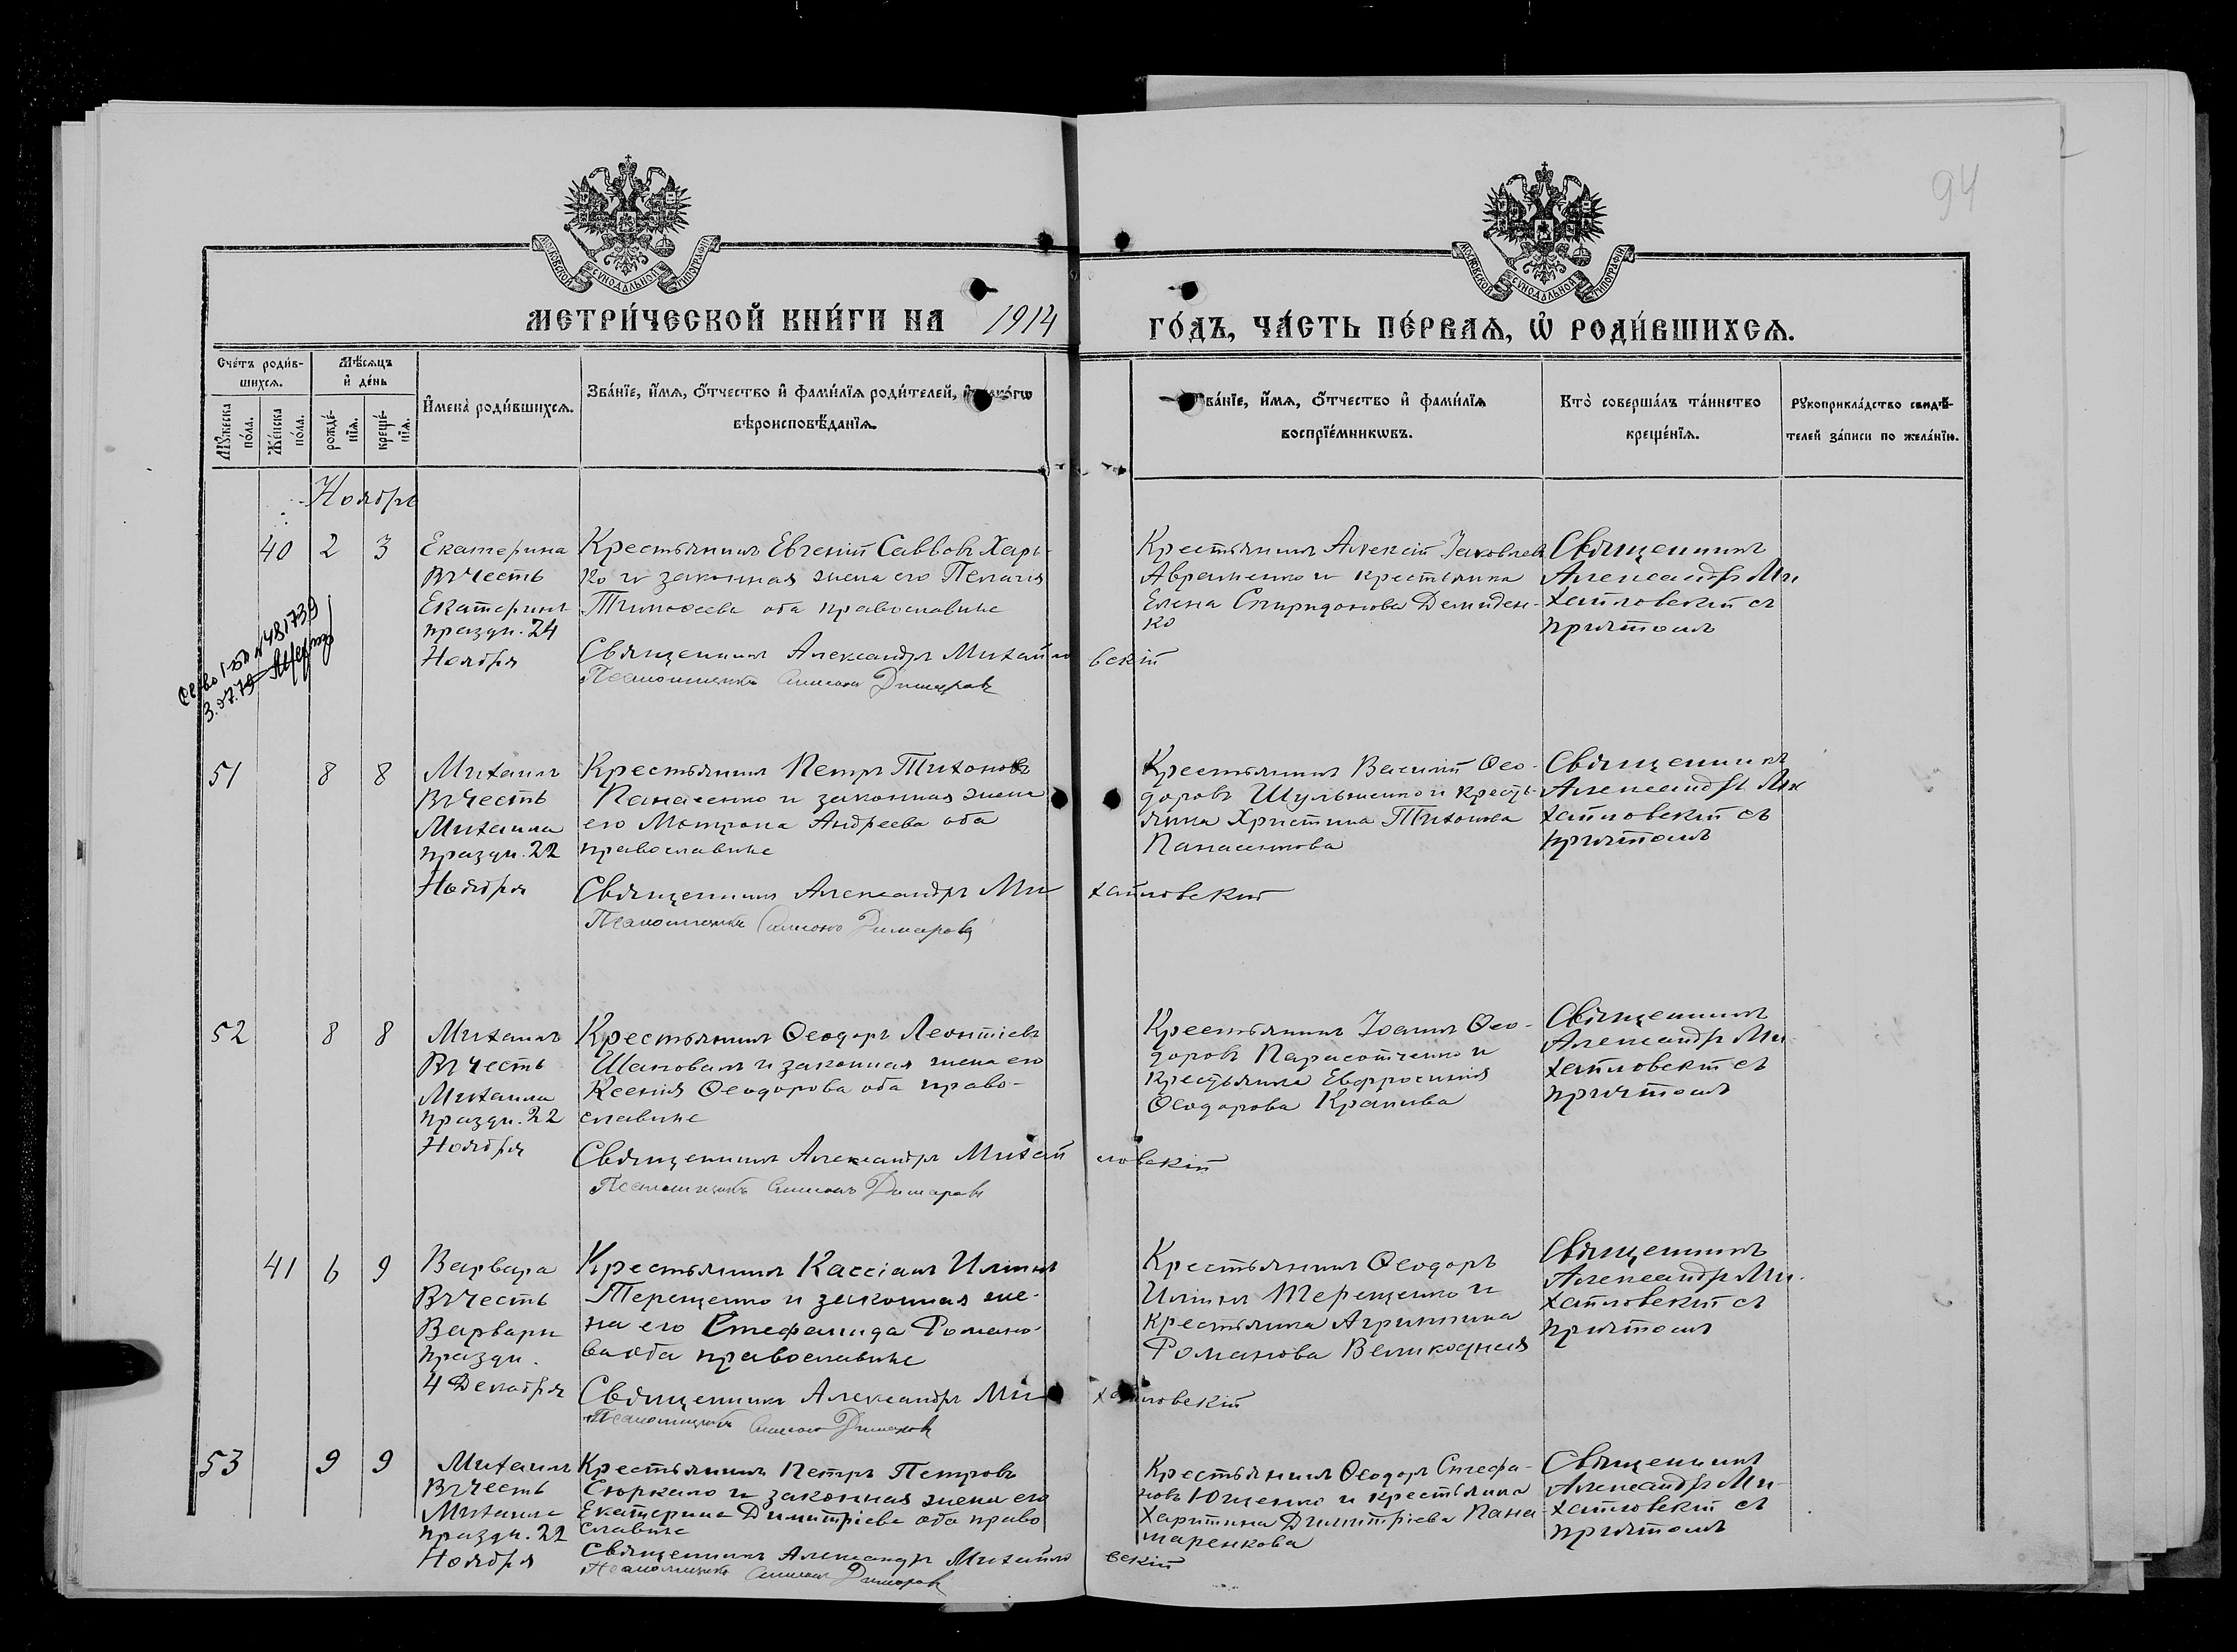 94
МОСКОВСКОЙ СУНОДАЛЬНОЙ ТИПОГРАФІИ
МОСКОВСКОЙ СУНОДАЛЬНОЙ ТИПОГРАФІИ
МЕТРИ́ЧЕСКОЙ КНИ́ГИ НА 1914 ГО́ДЪ, ЧА́СТЬ ПЕ́РВАЯ, Ѡ РОДИ́ВШИХСЯ.
Сче́тъ роди́в-
шихся.
Мѣ́сяцъ
и де́нь
Мꙋ́жеска
по́ла.
Же́нска
по́ла.
рожде́-
нїя.
креще́-
нїя.
И҆мена̀ роди́вшихся.
Зва́нїе, и҆́мя, ѻ҆́тчество и҆ фами́лїя роди́телей, и҆ како́гѡ
вѣроисповѣ́данїя.
Зва́нїе, и҆́мя, ѻ҆́тчество и҆ фами́лїя
воспрїе́мникѡвъ.
Кто̀ соверша́лъ та́инство
креще́нїя.
Рꙋкоприкла́дство свидѣ́-
телей за́писи по жела́нїю.
Ноябрь
40 2 3
Екатерина
Въ честь
Екатерины
праздн. 24
Ноября
Крестьянинъ Евгеній Саввовъ Харь-
ко и законная жена его Пелагія
Тимоѳеева оба православные
Священникъ Александръ Михайловскій
Псаломщикъ Симеонъ Димаровъ
Крестьянинъ Алексій Іаковлевъ
Авраменко и крестьянка
Елена Спиридонова Демиден-
ко
Священникъ
Александръ Ми
хайловскій съ
причтомъ
481739
3.07.79
51 8 8
Михаилъ
Въ честь
Михаила
праздн. 22
Ноября
Крестьянинъ Петръ Тихоновъ
Панасенко и законная жена
его Матрона Андреева оба
православные
Священникъ Александръ Михайловскій
Псаломщикъ Симеонъ Димаровъ
Крестьянинъ Василій Ѳео-
доровъ Шульженко и кресть-
янка Христина Тихонова
Панасенкова
Священникъ
Александръ Ми
хайловскій съ
причтомъ
52 8 8
Михаилъ
Въ честь
Михаила
праздн. 22
Ноября
Крестьянинъ Ѳеодоръ Леонтіевъ
Шаповалъ и законная жена его
Ксенія Ѳеодорова оба право-
славные
Священникъ Александръ Михайловскій
Псаломщикъ Симеонъ Димаровъ
Крестьянинъ Іоаннъ Ѳео-
доровъ Парасотченко и
крестьянка Евфросинія
Ѳеодорова Крапива
Священникъ
Александръ Ми-
хайловскій съ
причтомъ
41 6 9
Варвара
Въ честь
Варвары
праздн.
4 Декабря
Крестьянинъ Кассіанъ Иліинъ
Терещенко и законная же-
на его Стефанида Романо-
ва оба православные
Священникъ Александръ Михайловскій
Псаломщикъ Симеонъ Димаровъ
Крестьянинъ Ѳеодоръ
Иліинъ Терещенко и
крестьянка Агриппина
Романова Великодная
Священникъ
Александръ Ми-
хайловскій съ
причтомъ
53 9 9
Михаилъ
Въ честь
Михаила
праздн. 22
Ноября
Крестьянинъ Петръ Петровъ
Сюркало и законная жена его
Екатерина Димитріева оба право
славные
Священникъ Александръ Михайловскій
Псаломщикъ Симеонъ Димаровъ
Крестьянинъ Ѳеодоръ Стефа-
новъ Ющенко и крестьянка
Харитина Димитріева Пона-
маренкова
Священникъ
Александръ Ми-
хайловскій съ
причтомъ